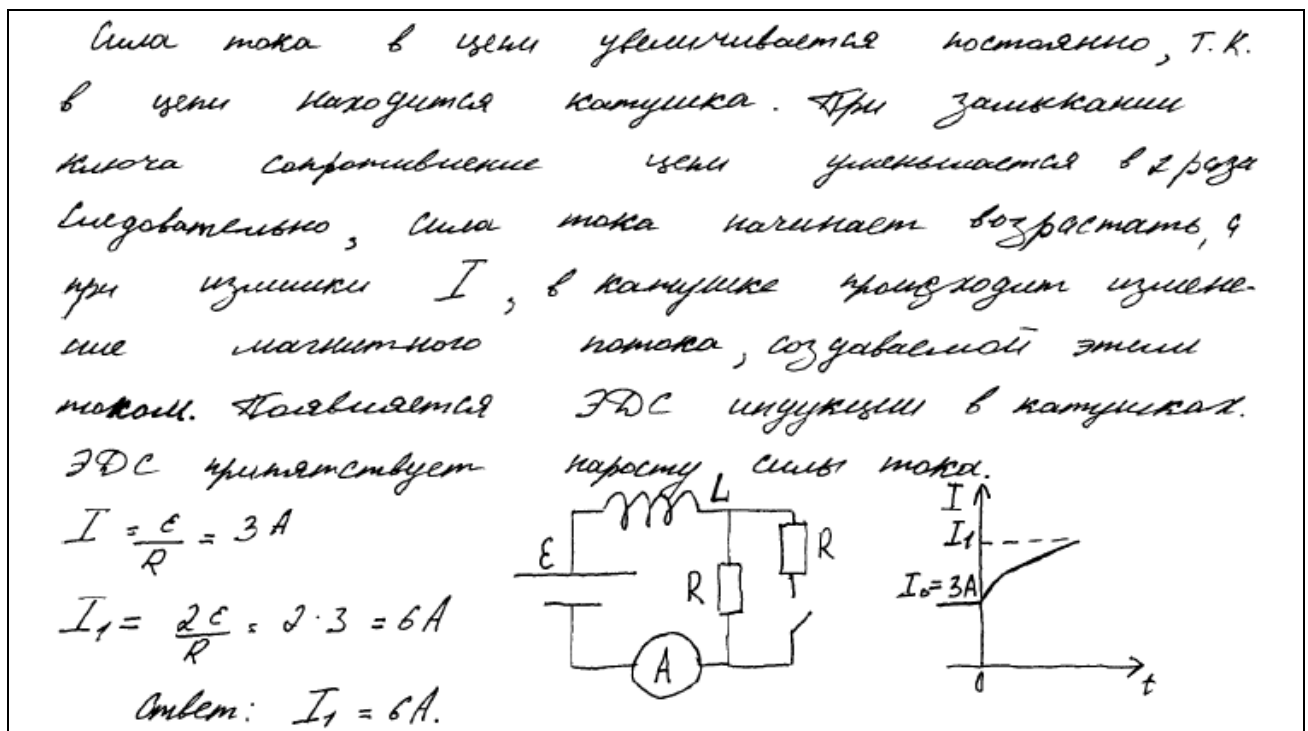 Сила тока в цепи увеличивается постоянно, т.к.
в цепи находится катушка. При замыкании
ключа сопротивление цепи уменьшается в 2 раза
Следовательно, сила тока начинает возрастать, а
при измиики I, в катушке происходит измене-
ние магнитного потока, создаваемой этим
током. Появляется ЭДС индукции в катушках.
ЭДС припятствует наросту силы тока.
I = ε/R = 3 А
I₁ = 2ε/R = 2·3 = 6А
Ответ: I₁ = 6А.
L
ε
R
R
A
I
I₁
I₀=3А
0
t